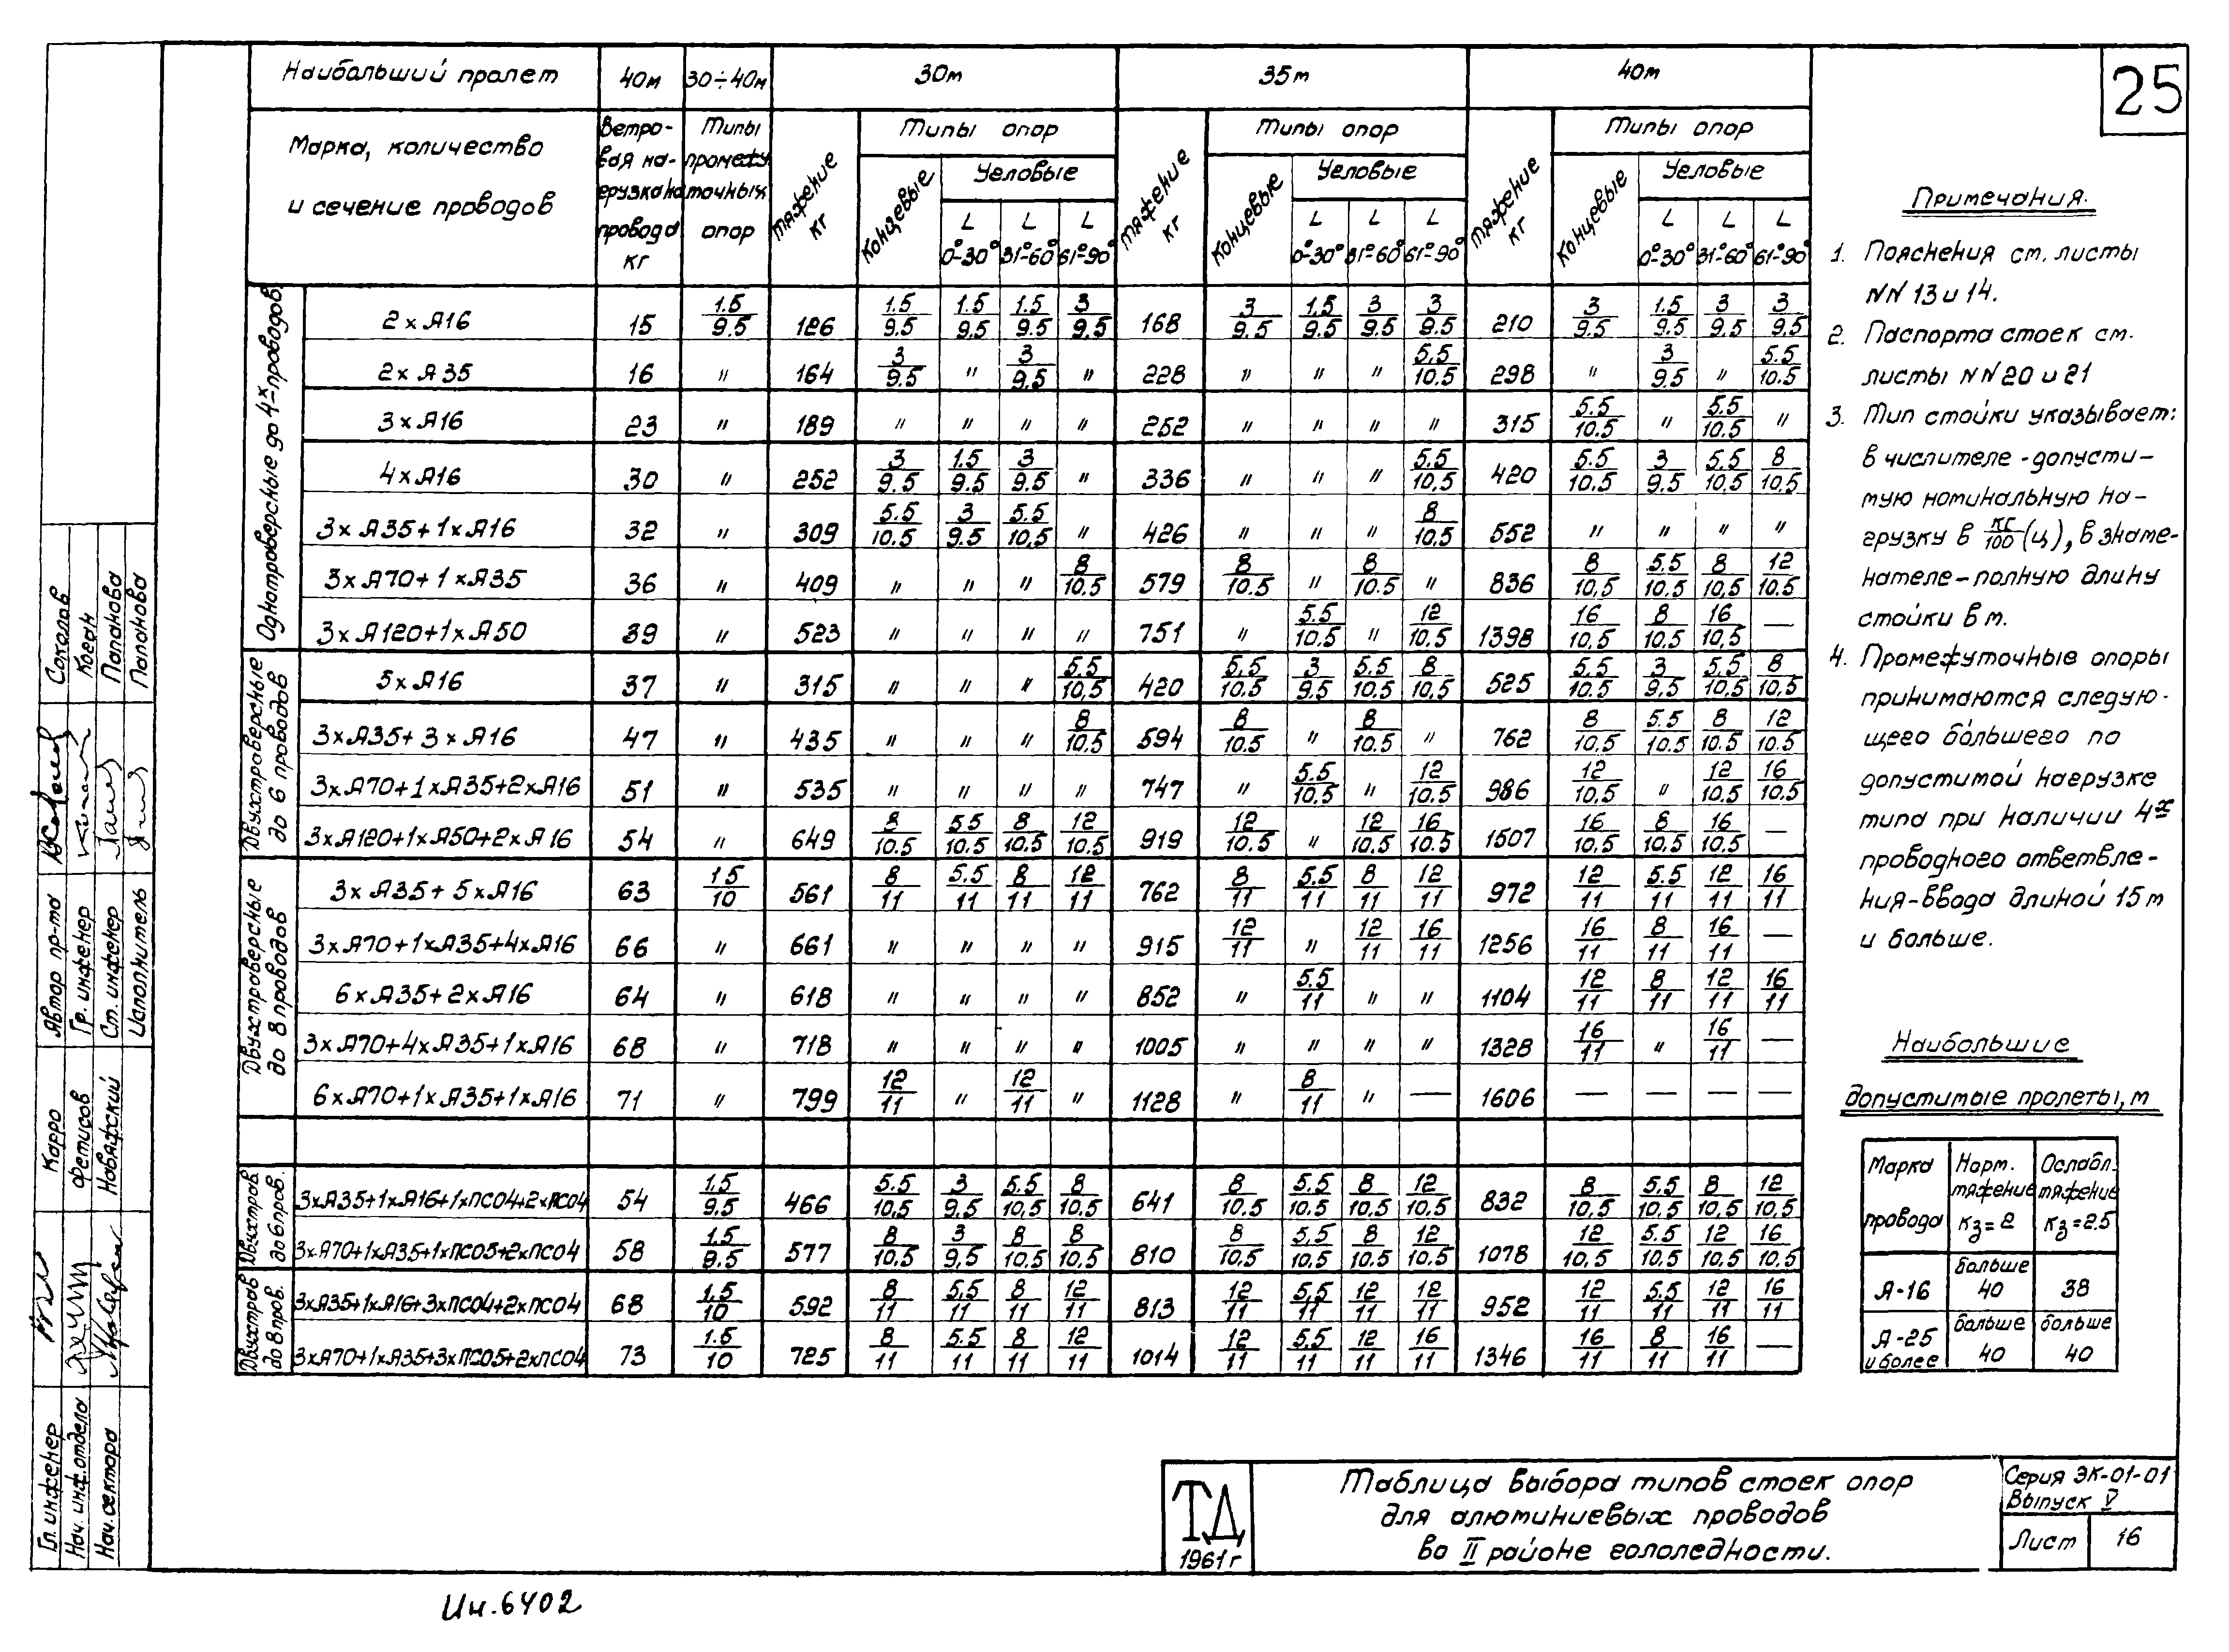 25
Наибольший пролет 40м 30÷40м 30м 35м 40м
Марка, количество и сечение проводов
Ветровая нагрузка на провода кг
Типы промежуточных опор
Тяжение кг Типы опор Концевые Угловые L 0°-30° L 31°-60° L 61°-90°
Тяжение кг Типы опор Концевые Угловые L 0°-30° L 31°-60° L 61°-90°
Тяжение кг Типы опор Концевые Угловые L 0°-30° L 31°-60° L 61°-90°
Однотраверсные до 4х-проводов
2×А16 15 1.5/9.5 126 1.5/9.5 1.5/9.5 1.5/9.5 3/9.5 168 3/9.5 1.5/9.5 3/9.5 3/9.5 210 3/9.5 1.5/9.5 3/9.5 3/9.5
2×А35 16 " 164 3/9.5 " 3/9.5 " 228 " " " 5.5/10.5 298 " 3/9.5 " 5.5/10.5
3×А16 23 " 189 " " " " 252 " " " " 315 5.5/10.5 " 5.5/10.5 "
4×А16 30 " 252 3/9.5 1.5/9.5 3/9.5 " 336 " " " 5.5/10.5 420 5.5/10.5 3/9.5 5.5/10.5 8/10.5
3×А35+1×А16 32 " 309 5.5/10.5 3/9.5 5.5/10.5 " 426 " " " 8/10.5 552 " " " "
3×А70+1×А35 36 " 409 " " " 8/10.5 579 8/10.5 " 8/10.5 " 836 8/10.5 5.5/10.5 8/10.5 12/10.5
3×А120+1×А50 39 " 523 " " " " 751 " 5.5/10.5 " 12/10.5 1398 16/10.5 8/10.5 16/10.5 —
Двухтраверсные до 6 проводов
5×А16 37 " 315 " " " 5.5/10.5 420 5.5/10.5 3/9.5 5.5/10.5 8/10.5 525 5.5/10.5 3/9.5 5.5/10.5 8/10.5
3×А35+3×А16 47 " 435 " " " 8/10.5 594 8/10.5 " 8/10.5 " 762 8/10.5 5.5/10.5 8/10.5 12/10.5
3×А70+1×А35+2×А16 51 " 535 " " " " 747 " 5.5/10.5 " 12/10.5 986 12/10.5 " 12/10.5 16/10.5
3×А120+1×А50+2×А16 54 " 649 8/10.5 5.5/10.5 8/10.5 12/10.5 919 12/10.5 " 12/10.5 16/10.5 1507 16/10.5 8/10.5 16/10.5 —
Двухтраверсные до 8 проводов
3×А35+5×А16 63 1.5/10 561 8/11 5.5/11 8/11 12/11 762 8/11 5.5/11 8/11 12/11 972 12/11 5.5/11 12/11 16/11
3×А70+1×А35+4×А16 66 " 661 " " " " 915 12/11 " 12/11 16/11 1256 16/11 8/11 16/11 —
6×А35+2×А16 64 " 618 " " " " 852 " 5.5/11 " " 1104 12/11 8/11 12/11 16/11
3×А70+4×А35+1×А16 68 " 718 " " " " 1005 " " " " 1328 16/11 " 16/11 —
6×А70+1×А35+1×А16 71 " 799 12/11 " 12/11 " 1128 " 8/11 " — 1606 — — — —
Двухтрав. до 6 пров.
3×А35+1×А16+1×ПСО4+2×ПСО4 54 1.5/9.5 466 5.5/10.5 3/9.5 5.5/10.5 8/10.5 641 8/10.5 5.5/10.5 8/10.5 12/10.5 832 8/10.5 5.5/10.5 8/10.5 12/10.5
3×А70+1×А35+1×ПСО5+2×ПСО4 58 1.5/9.5 577 8/10.5 3/9.5 8/10.5 8/10.5 810 8/10.5 5.5/10.5 8/10.5 12/10.5 1078 12/10.5 5.5/10.5 12/10.5 16/10.5
Двухтрав. до 8 пров.
3×А35+1×А16+3×ПСО4+2×ПСО4 68 1.5/10 592 8/11 5.5/11 8/11 12/11 813 12/11 5.5/11 12/11 12/11 952 12/11 5.5/11 12/11 16/11
3×А70+1×А35+3×ПСО5+2×ПСО4 73 1.5/10 725 8/11 5.5/11 8/11 12/11 1014 12/11 5.5/11 12/11 16/11 1346 16/11 8/11 16/11 —
Примечания.
1. Пояснения см. листы
NN 13 и 14.
2. Паспорта стоек см.
листы NN 20 и 21
3. Тип стойки указывает:
в числителе - допусти-
мую номинальную на-
грузку в кг/100 (ц), в знаме-
нателе – полную длину
стойки в м.
4. Промежуточные опоры
принимаются следую-
щего большего по
допустимой нагрузке
типа при наличии 4х
проводного ответвле-
ния-ввода длиной 15м
и больше.
Наибольшие
допустимые пролеты, м
Марка провода Норм. тяжение Kз=2 Ослабл. тяжение Kз=2.5
А-16 больше 40 38
А-25 и более больше 40 больше 40
ТД
1961г
Таблица выбора типов стоек опор
для алюминиевых проводов
во II районе гололедности.
Серия ЭК-01-01
Выпуск V
Лист 16
Автор пр-та Соколов
Гр. инженер Коган
Ст. инженер Папанова
Исполнитель Папанова
Гл. инженер Карро
Нач. инж. отдела Фетисов
Нач. сектора Навяжский
Ин. 6402